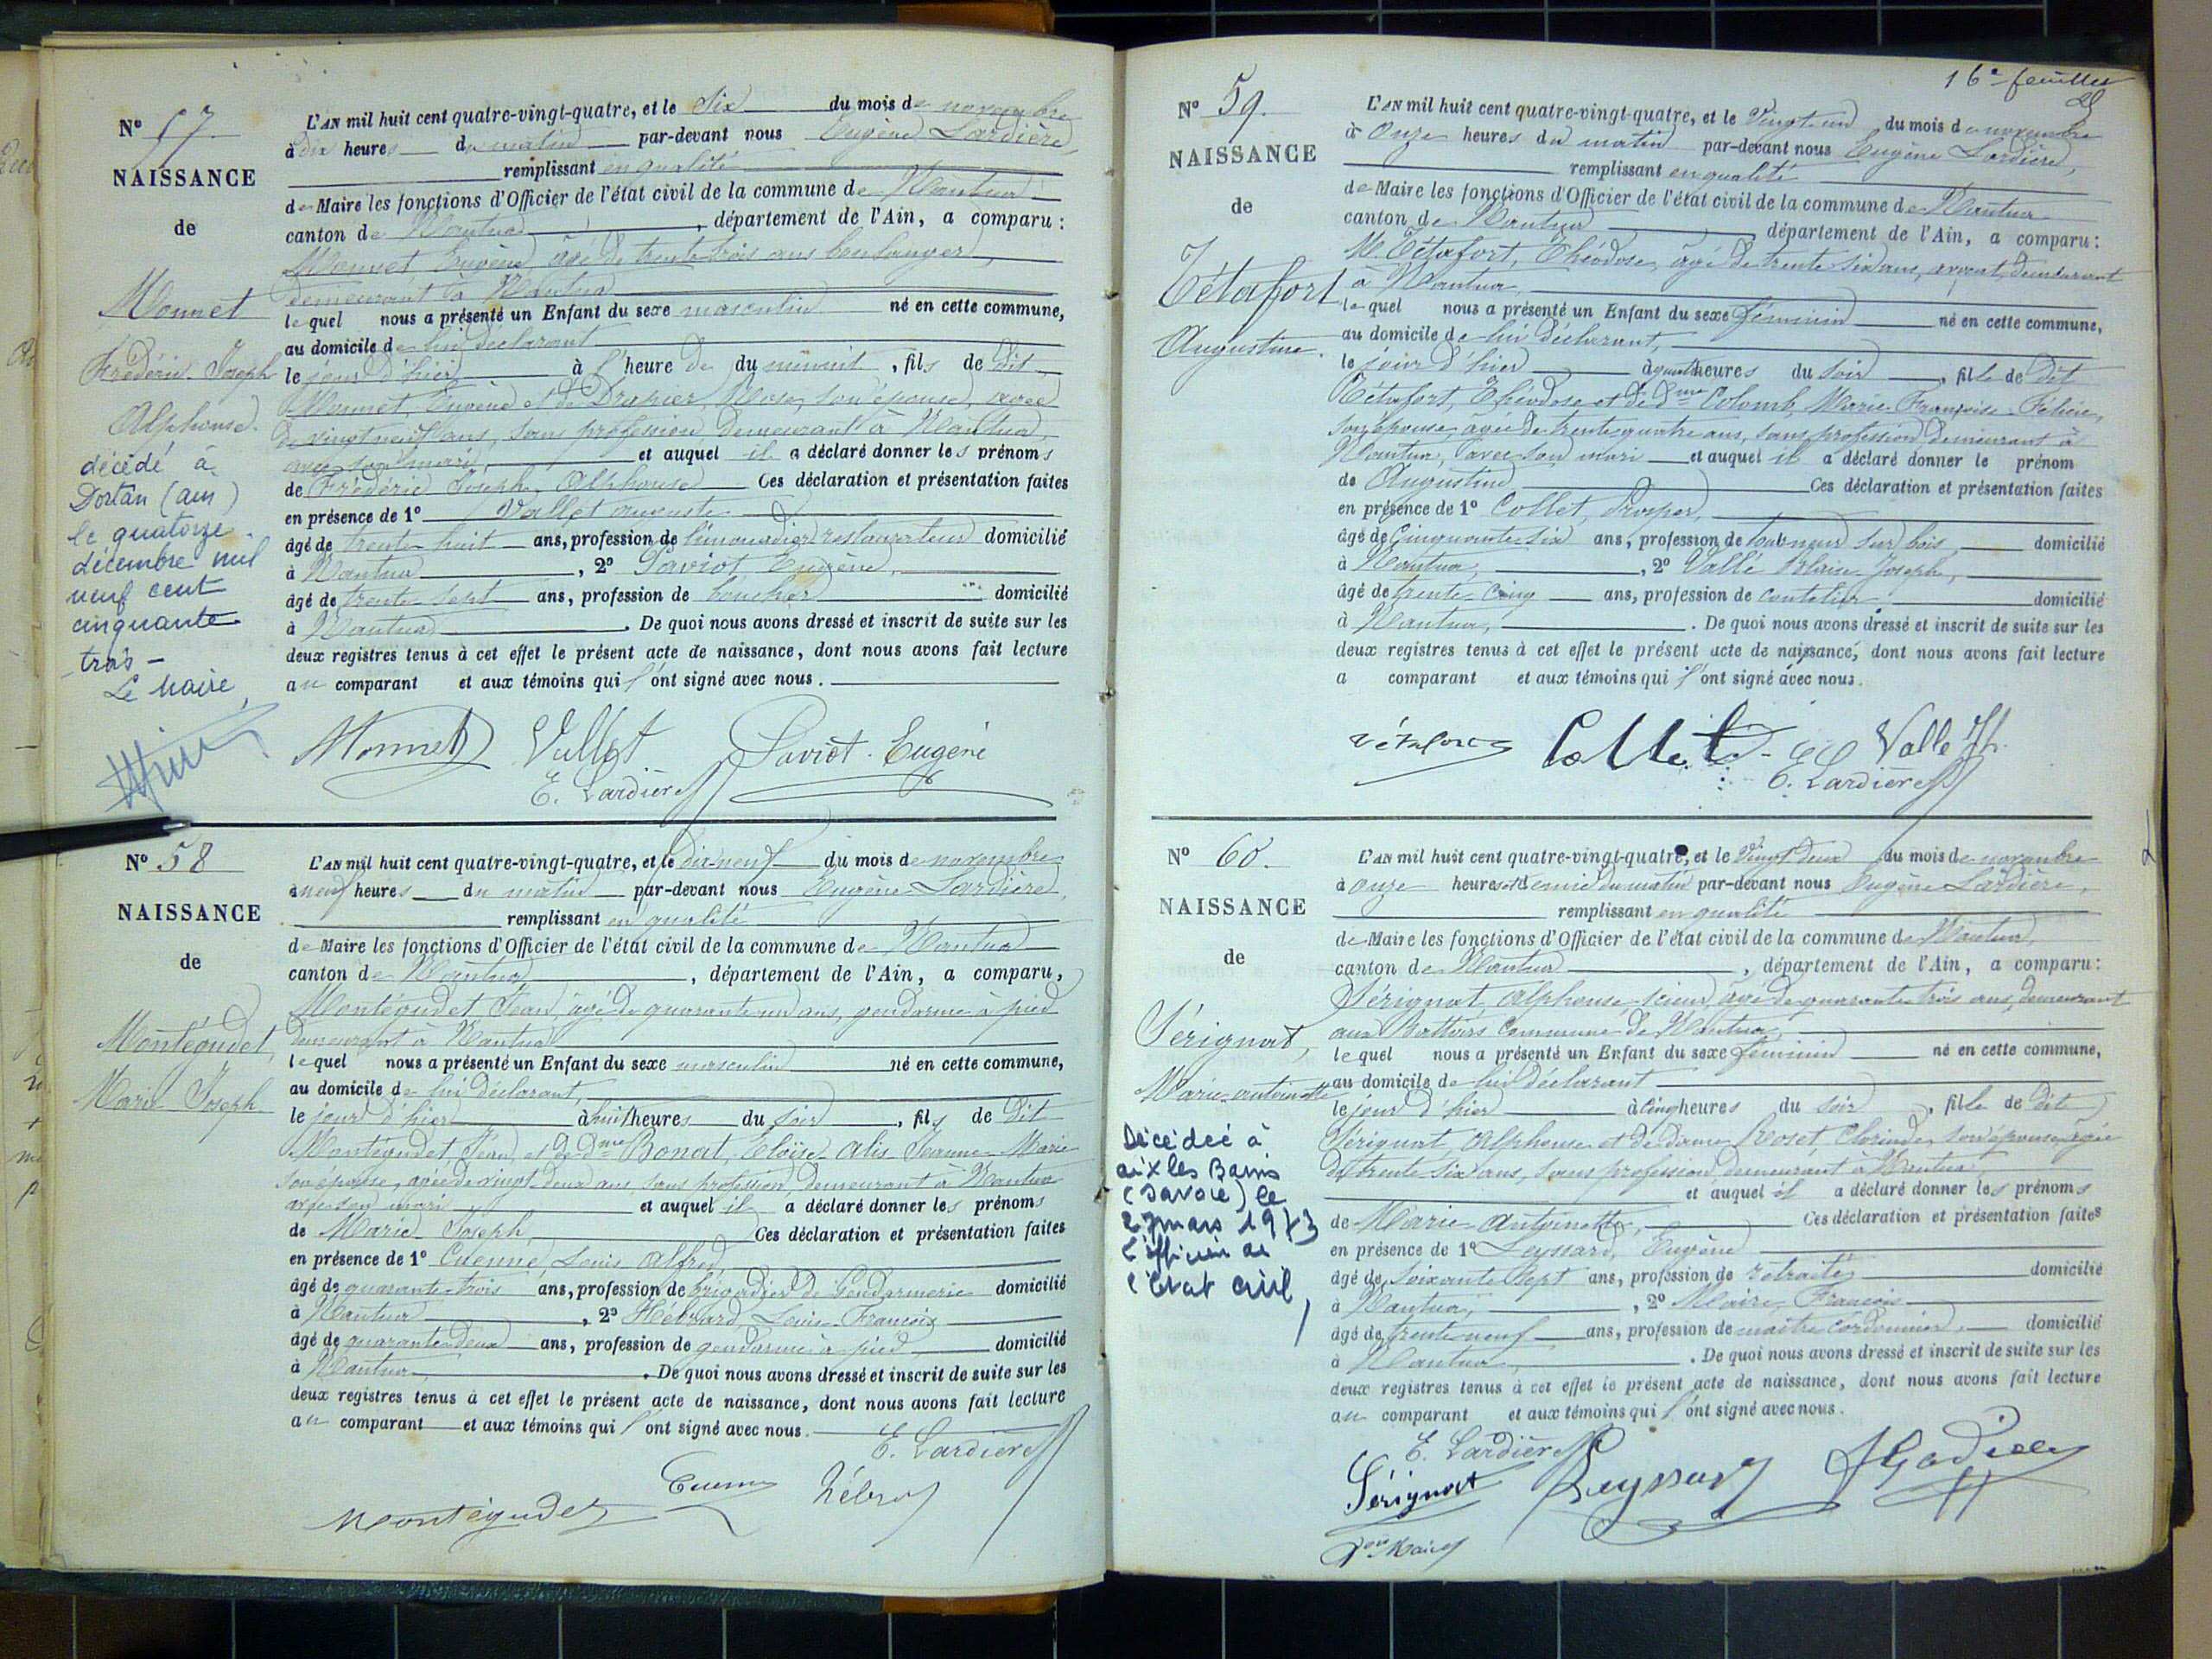 N° 57.
NAISSANCE
de
Monnet
Frédéric Joseph
Alphonse.
décédé à
Dortan (ain)
le quatorze
décembre mil
neuf cent
cinquante
trois -
Le Maire,
L'AN mil huit cent quatre-vingt-quatre, et le Six du mois de novembre
à dix heures du matin par-devant nous Eugène Lardière
remplissant en qualité
de Maire les fonctions d'Officier de l'état civil de la commune de Nantua
canton de Nantua, département de l'Ain, a comparu :
Monnet Eugène, âgé de trente trois ans boulanger,
demeurant à Nantua
lequel nous a présenté un Enfant du sexe masculin né en cette commune,
au domicile de lui déclarant
le jour d'hier à l'heure de du minuit, fils de dit
Monnet, Eugène et de Drapier, Rose, son épouse,
de vingt neuf ans, sans profession, demeurant à Nantua,
avec son mari, et auquel il a déclaré donner les prénoms
de Frédéric Joseph Alphonse Ces déclaration et présentation faites
en présence de 1° Vallet auguste
âgé de trente huit ans, profession de limonadier restaurateur domicilié
à Nantua, 2° Saviot Eugène,
âgé de trente sept ans, profession de boucher domicilié
à Nantua. De quoi nous avons dressé et inscrit de suite sur les
deux registres tenus à cet effet le présent acte de naissance, dont nous avons fait lecture
au comparant et aux témoins qui l'ont signé avec nous.
Monnet Vallet Saviot Eugène
E. Lardière
N° 58
NAISSANCE
de
Montégudet,
Marie Joseph
L'AN mil huit cent quatre-vingt-quatre, et le dix-neuf du mois de novembre
à neuf heures du matin par-devant nous Eugène Lardière,
remplissant en qualité
de Maire les fonctions d'Officier de l'état civil de la commune de Nantua
canton de Nantua, département de l'Ain, a comparu,
Montégudet, Jean, âgé de quarante un ans, gendarme à pied
demeurant à Nantua
lequel nous a présenté un Enfant du sexe masculin né en cette commune,
au domicile de lui déclarant,
le jour d'hier à huit heures du soir, fils de dit
Montégudet, Jean, et de dme Bonat, Eloïse Alis Jeanne Marie
son épouse, agée de vingt deux ans, sans profession, demeurant à Nantua
avec son mari et auquel il a déclaré donner les prénoms
de Marie Joseph, Ces déclaration et présentation faites
en présence de 1° Cuenne, Louis Alfred,
âgé de quarante-trois ans, profession de brigadier de Gendarmerie domicilié
à Nantua, 2° Hébrard, Louis François
âgé de quarante deux ans, profession de gendarme à pied domicilié
à Nantua. De quoi nous avons dressé et inscrit de suite sur les
deux registres tenus à cet effet le présent acte de naissance, dont nous avons fait lecture
au comparant et aux témoins qui l'ont signé avec nous.
E. Lardière
Montégudet Cuenne
16e feuillet
N° 59.
NAISSANCE
de
Tétafort
Augustine.
L'AN mil huit cent quatre-vingt-quatre, et le Vingt un du mois de novembre
à Onze heures du matin par-devant nous Eugène Lardière,
remplissant en qualité
de Maire les fonctions d'Officier de l'état civil de la commune de Nantua
canton de Nantua, département de l'Ain, a comparu :
M. Tétafort, Théodose, âgé de trente six ans, avocat, demeurant
à Nantua,
lequel nous a présenté un Enfant du sexe féminin né en cette commune,
au domicile de lui déclarant,
le jour d'hier à quatre heures du soir, fille de dit
Tétafort, Théodose et de dme Colomb, Marie Françoise Félicie,
son épouse, agée de trente quatre ans, sans profession demeurant à
Nantua, avec son mari et auquel il a déclaré donner le prénom
de Augustine Ces déclaration et présentation faites
en présence de 1° Collet, Prosper,
âgé de Cinquante six ans, profession de tourneur sur bois, domicilié
à Nantua, 2° Vallé Blaise Joseph,
âgé de trente Cinq ans, profession de coutelier domicilié
à Nantua, . De quoi nous avons dressé et inscrit de suite sur les
deux registres tenus à cet effet le présent acte de naissance, dont nous avons fait lecture
a comparant et aux témoins qui l'ont signé avec nous.
Tétafort Collet Valle Jh.
E. Lardière
N° 60.
NAISSANCE
de
Sérignat,
Marie-antoinette
Décédée à
aix les Bains
(Savoie) le
mars 1973
L'officier de
l'état civil,
L'AN mil huit cent quatre-vingt-quatre, et le Vingt deux du mois de novembre
à onze heures et demie du matin par-devant nous Eugène Lardière,
remplissant en qualité
de Maire les fonctions d'Officier de l'état civil de la commune de Nantua,
canton de Nantua, département de l'Ain, a comparu :
Sérignat, Alphonse, scieur, âgé de quarante trois ans, demeurant
aux Battoirs commune de Nantua,
lequel nous a présenté un Enfant du sexe féminin né en cette commune,
au domicile de lui déclarant
le jour d'hier à Cinq heures du soir, fille de dit
Sérignat, Alphonse et de dame Clorinde son épouse agée
de trente six ans, sans profession, demeurant à Nantua,
et auquel il a déclaré donner les prénoms
de Marie Antoinette, Ces déclaration et présentation faites
en présence de 1° Leyssard, Eugène
âgé de soixante sept ans, profession de retraité domicilié
à Nantua, 2° Maire, François
âgé de trente neuf ans, profession de maître cordonnier, domicilié
à Nantua, . De quoi nous avons dressé et inscrit de suite sur les
deux registres tenus à cet effet le présent acte de naissance, dont nous avons fait lecture
au comparant et aux témoins qui l'ont signé avec nous.
E. Lardière
Sérignat Leyssard